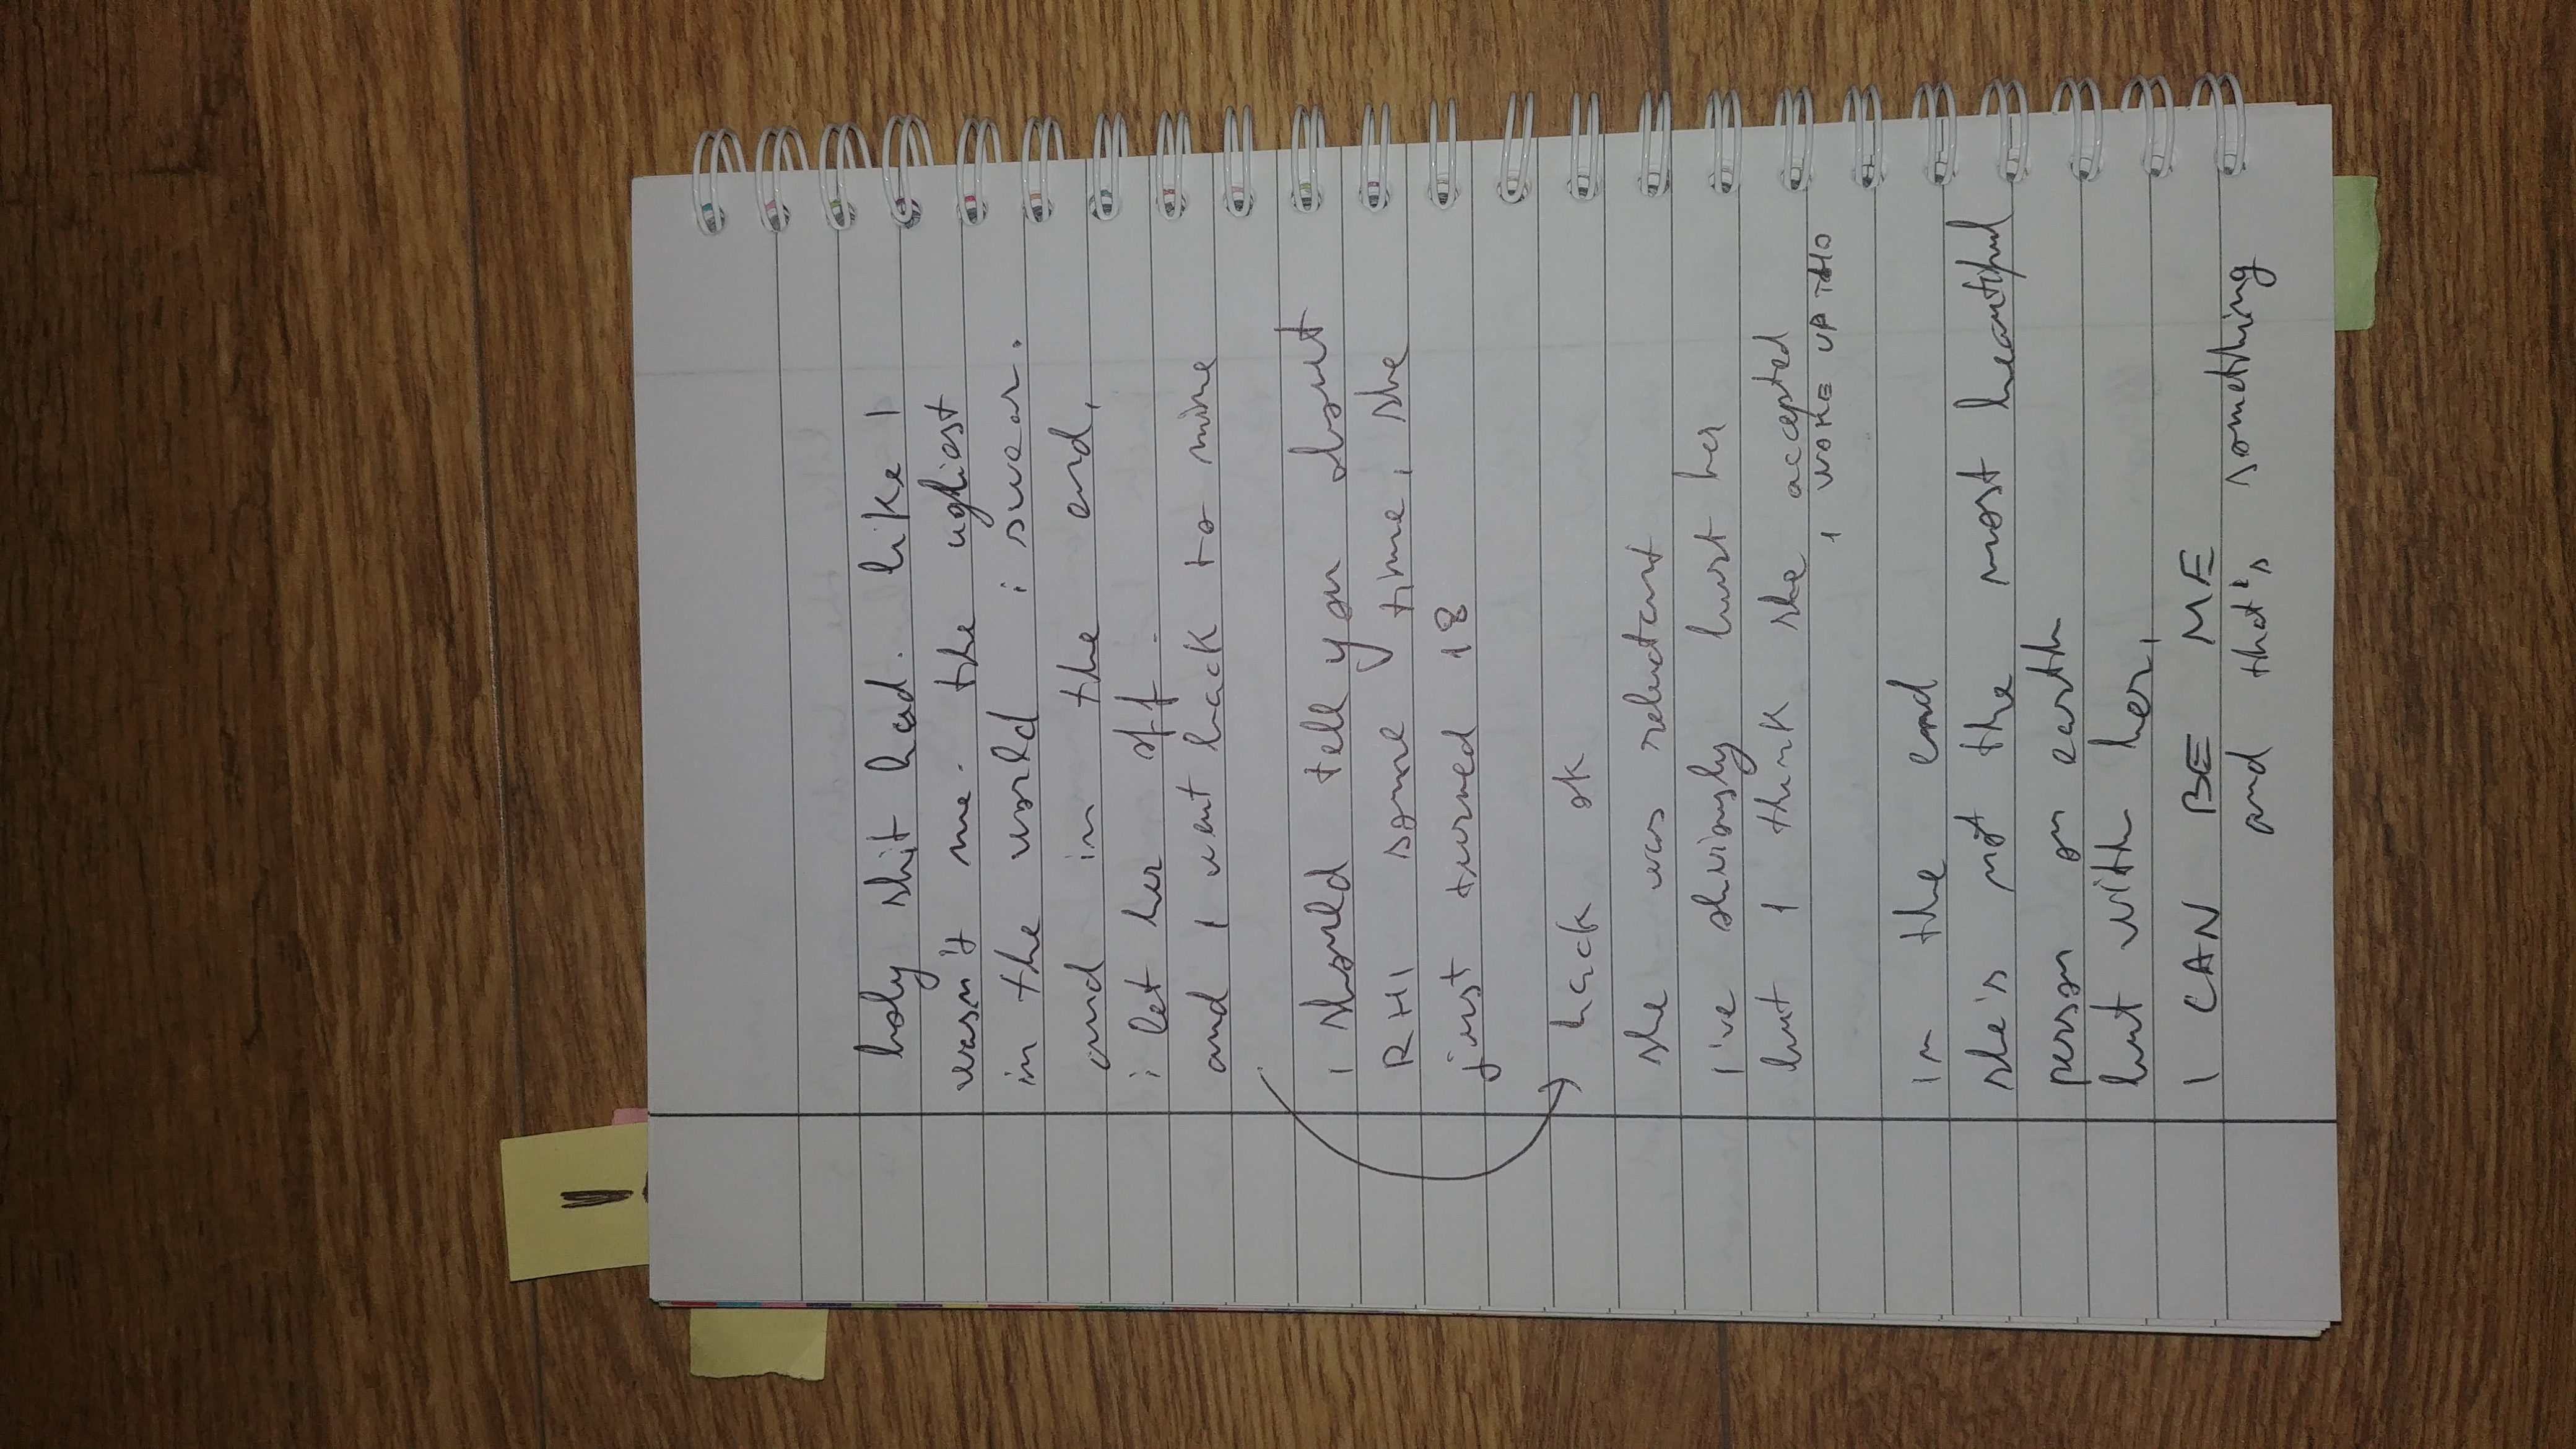 !
holy shit bad. like I
wasn't me. the ugliest
in the world i swear.
and in the end,
i let her off.
and I went back to mine
i should tell you about
RHI some time, she
just turned 18
back ok
she was reluctant
I've obviously hurt her
but I think she accepted
I WOKE UP THO
in the end
she's not the most beautiful
person on earth
but with her,
I CAN BE ME
and that's something